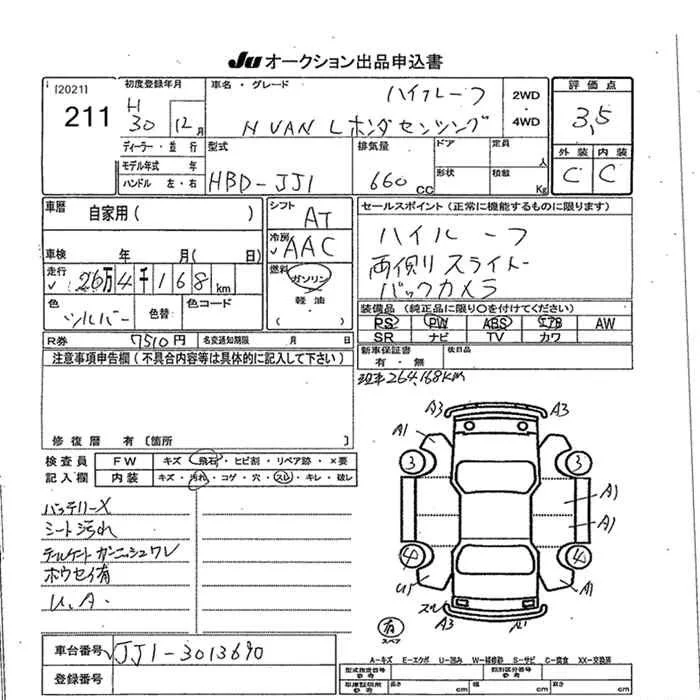 JU オークション出品申込書
[2021]
211
初度登録年月
H
30 12月
車名・グレード
ハイルーフ
N VAN L ホンダセンシング
2WD
・
4WD
評価点
3,5
外装 内装
C C
ディーラー・並 行
モデル年式 年
ハンドル 左・右
型式
HBD-JJ1
排気量
660 cc
ドア
形状
定員 人
積載 Kg
車歴 自家用( )
車検 年 月( 日)
走行
✓ 26万4千168km
色 シルバー
色替
色コード
シフト AT
冷房
✓ AAC
燃料 ガソリン
・
軽油
( )
セールスポイント (正常に機能するものに限ります)
ハイルーフ
両側リスライドー
バックカメラ
装備品 (純正品に限り○を付けてください)
PS PW ABS エアB AW
SR ナビ TV カワ
新車保証書
有・無
後日品
R券 7510円 名変通知期限 月 日
注意事項申告欄 (不具合内容等は具体的に記入して下さい)
修復歴 有 〔箇所
現車264,168KM
検査員
記入欄
FW キズ・飛石・ヒビ割・リペア跡・×要
内装 キズ・汚れ・コゲ・穴・スレ・キレ・破レ
バッテリーX
シート汚れ
テールゲートガーニッシュワレ
ホウセイ有
U,A.
A3 A3
A1
3 3
A1
A1
4 4
U1 A1
スレ
A3 A1
有
スペア
車台番号 ✓ JJ1-3013690
登録番号
A-キズ E-エクボ U-凹み W-補修跡 S-サビ C-腐食 XX-交換済
型式指定番号
参考
類別区分番号
参考
車庫証明用
参考
長さ cm 幅 cm 高さ cm